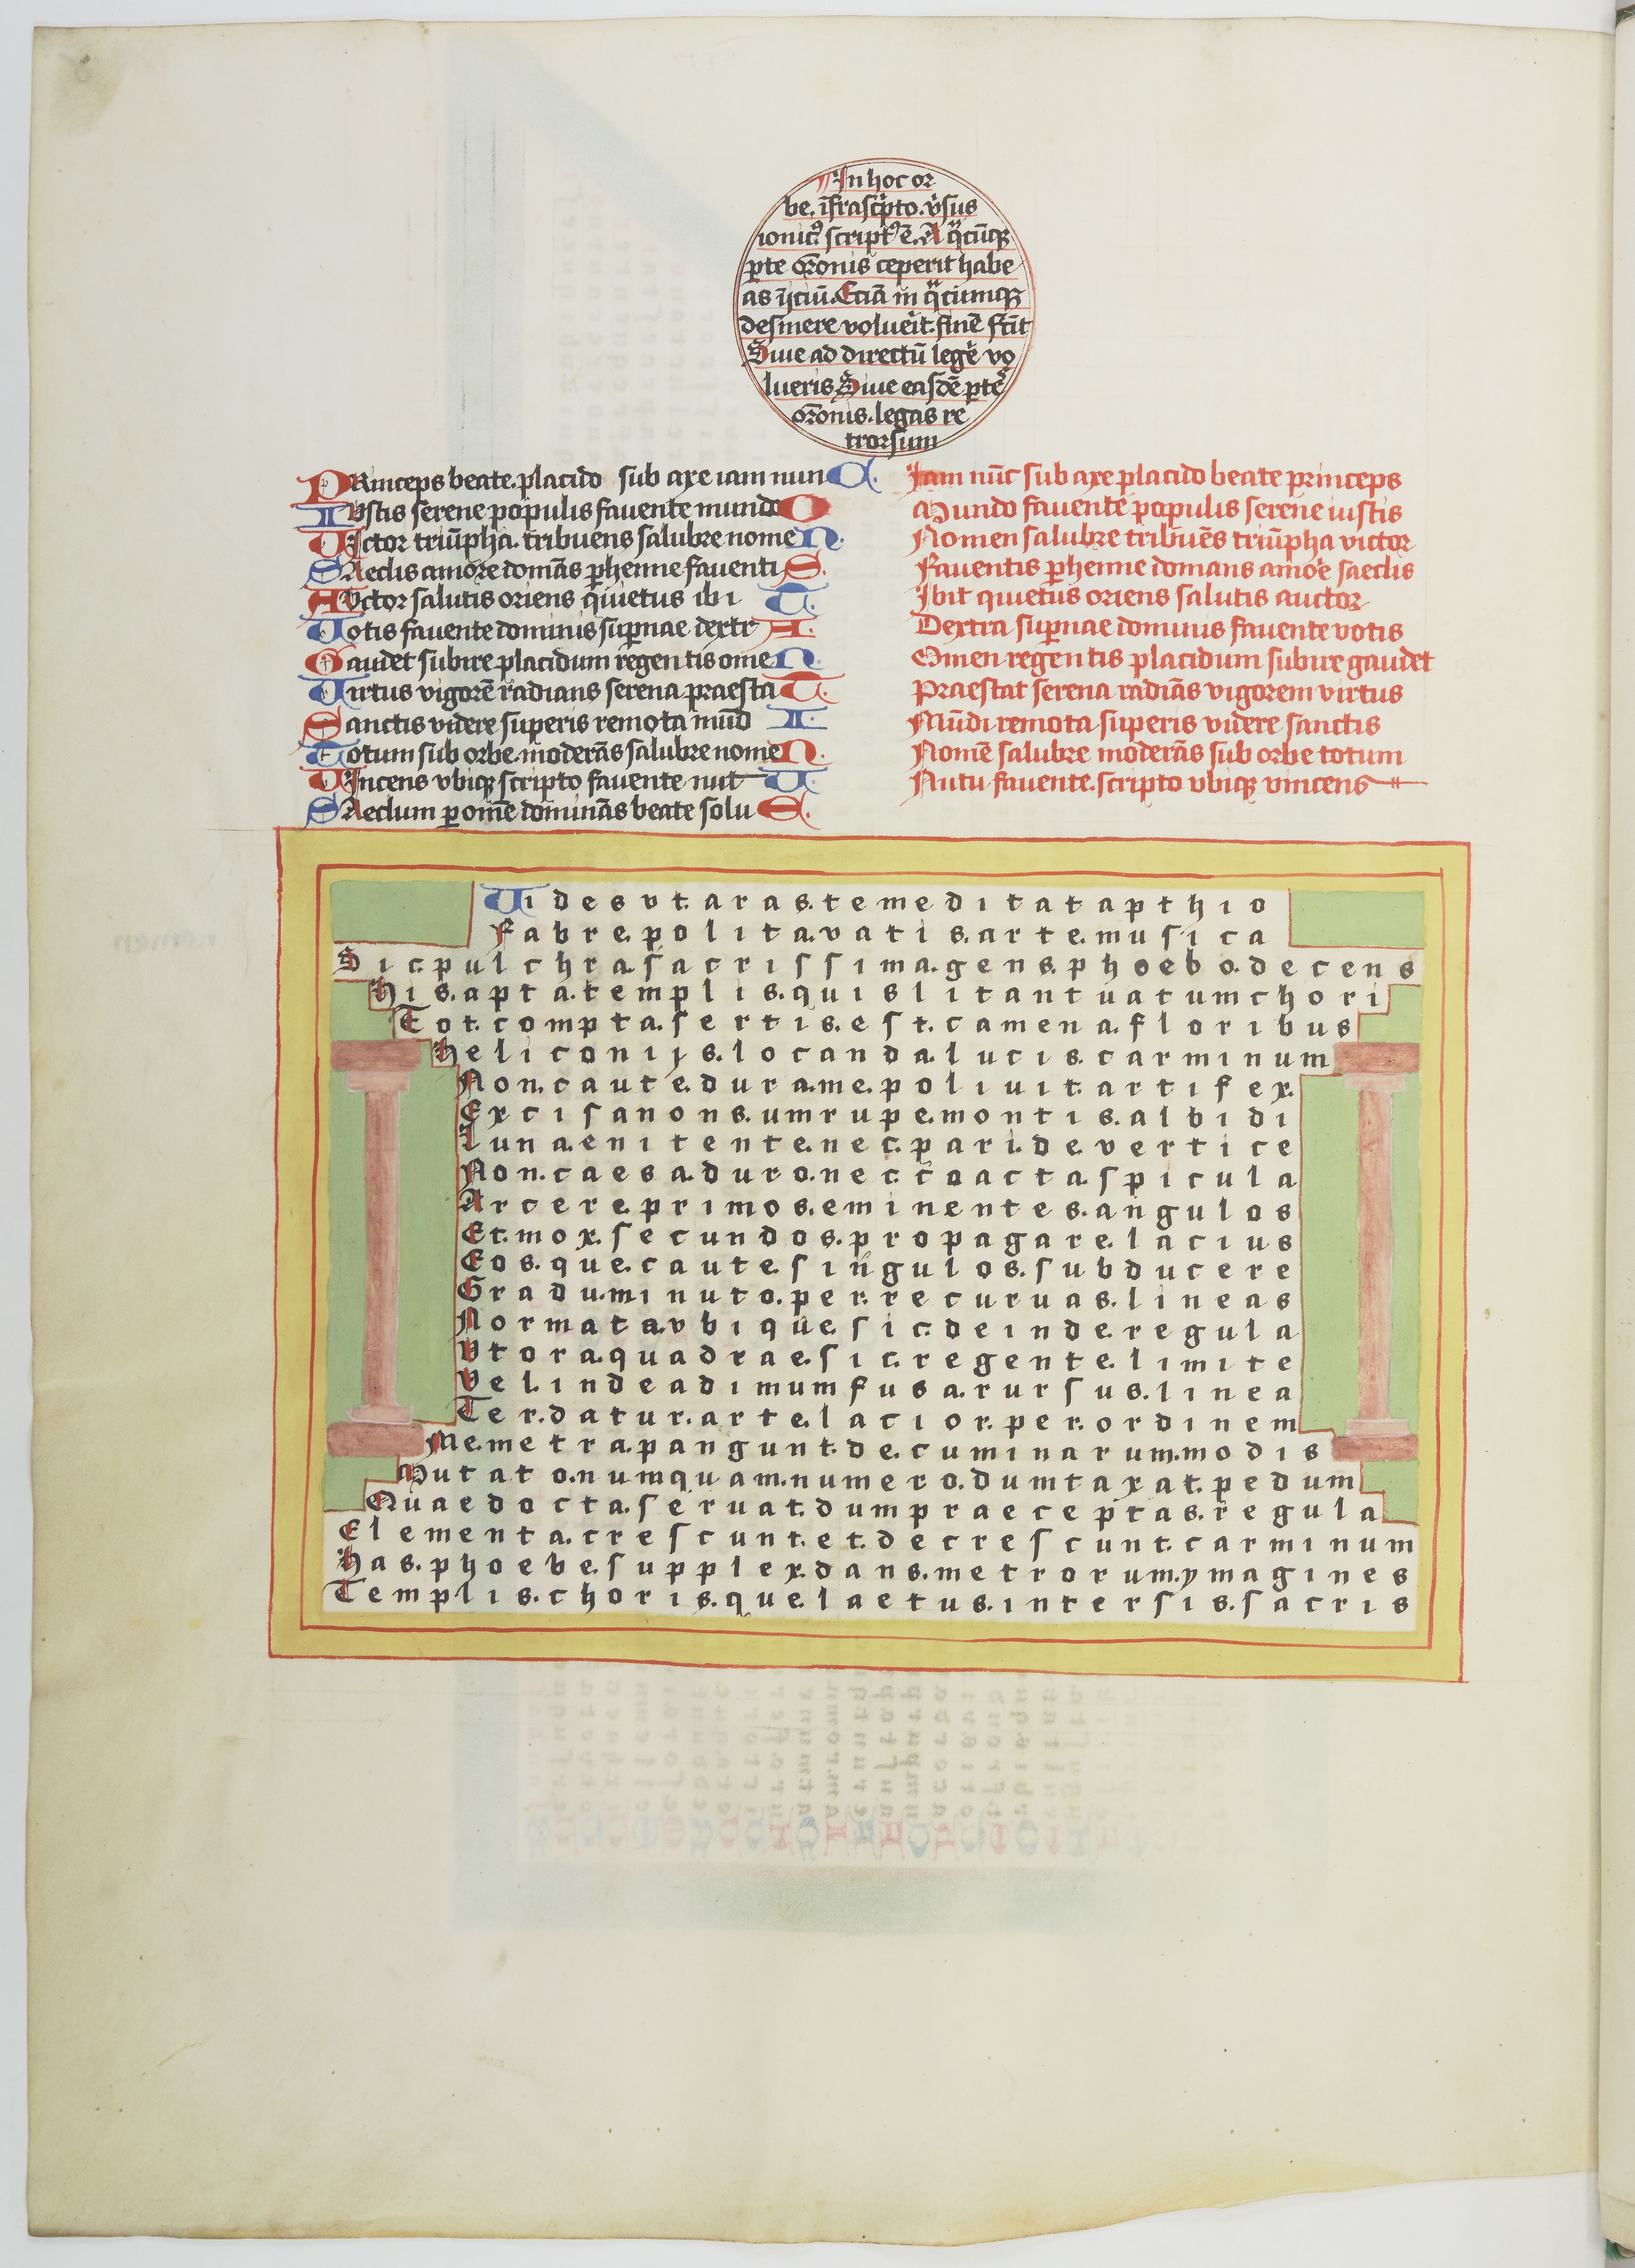 In hoc or
be. īfrascͥpto. v̓sus
ionicꝰ. scriptꝰ ē. A qͣcūqꝫ
ꝑte or̄onis ceperit habe
as īiciū. Eciā in qͣcumqꝫ
desinere volueit. finē
Siue ad directū legē vo
lueris Siue easdē ꝑte
or̄onis. legas re
trorsum
PRinceps beate. placido sub axe iam nunC.
IVstis serene populis fauente mundO
VIctor triūpha. tribuens salubre nomeN.
SAeclis amore domās ꝑhenne fauentiS.
AVctor salutis oriens quietus ibiT.
Votis fauente dominis suꝑnae dextrA.
Gaudet subire placidum regentis omeN.
Virtus vigorē radians serena praestaT.
Sanctis videre superis remota mūdI.
Totum sub orbe. moderās salubre nomeN.
VIncens vbiqꝫ scripto fauente nutV.
SAeclum ꝑ omē dominās beate soluS.
Iam nūc sub axe placido beate princeps
Mundo fauente populis serene iustis
Nomen salubre tribuēs triūpha victor
Fauentis ꝑhenne domans amoe saeclis
Ibit quietus oriens salutis auctor
Dextra suꝑnae dominis fauente votis
Omen regentis placidum subire gaudet
Praestat serena radiās vigorem virtus
Mūdi remota superis videre sanctis
Nomē salubre moderās sub orbe totum
Nutu fauente. scripto vbiqꝫ vincens
Vides vt. aras. te meditatapthio
Fabre. polita. vatis. arte. musica
Sic. pulchra. sacrissima. gens. phoebo. decens
His. apta. templis. quislitantuatumchori
Tot. compta. sertis. est. camena. floribus
Heliconijs. locanda. lucis. carminum
Non. caute. dura. me. poliuit. artifex.
Excisanons. umrupe. montis. albidi
Luna. enitente. nec. pari. de. vertice
Non. caesa. duro. nec. coacta. spicula
Arcere. primos. eminentes. angulos
Et. mox. secundos. propagare. lacius
Eos. que. caute. singulos. subducere
Gradu. minuto. per. recuruas. lineas
Normata. vbique. sic. deinde. regula
Vtora. quadrae. sic. regente. limite
Vel. indeadimumfusa. rursus. linea
Ter. datur. arte. lacior. per. ordinem
Me. metra. pangunt. de. cuminarum. modis
Mutato. numquam. numero. dumtaxat. pedum
Quae docta. seruat. dumpraeceptas. regula
Elementa. crescunt. et. decrescunt. carminum
Has. phoebe. supplex. dans. metrorum. ymagines
Templis. choris. que. laetus. intersis. sacris